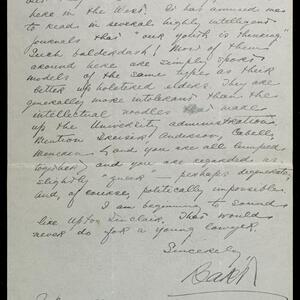 here in the West. It has amused me
to read in several highly intelligent
journals that "our youth is thinking"
Such balderdash! Most of them
around here are simply sport
models of the same types as their
better upholstered elders. They are
generally more intolerant than the
intellectual noodles that make
up the University administration.
Mention Dreiser, Anderson, Cabell,
Mencken (and you are all lumped
together) and you are regarded as
slightly "queer" — perhaps degenerate,
and, of course, politically impossible.
I am beginning to sound
like Upton Sinclair. That would
never do for a young lawyer.
Sincerely,